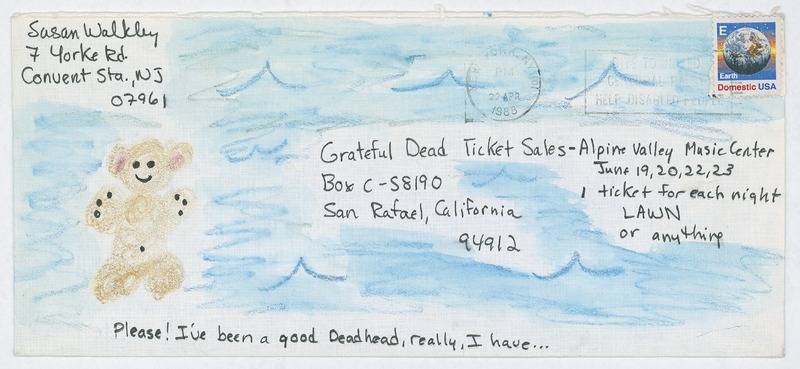 Susan Walkley
7 Yorke Rd.
Convent Sta., NJ
07961
E
Earth
Domestic USA
PM
22 APR
1988
HELP DISABLED PEOPLE
Grateful Dead Ticket Sales - Alpine Valley Music Center
June 19, 20, 22, 23
Box C-S8190
1 ticket for each night
San Rafael, California
LAWN
94912
or anything
Please! I've been a good Deadhead, really, I have...